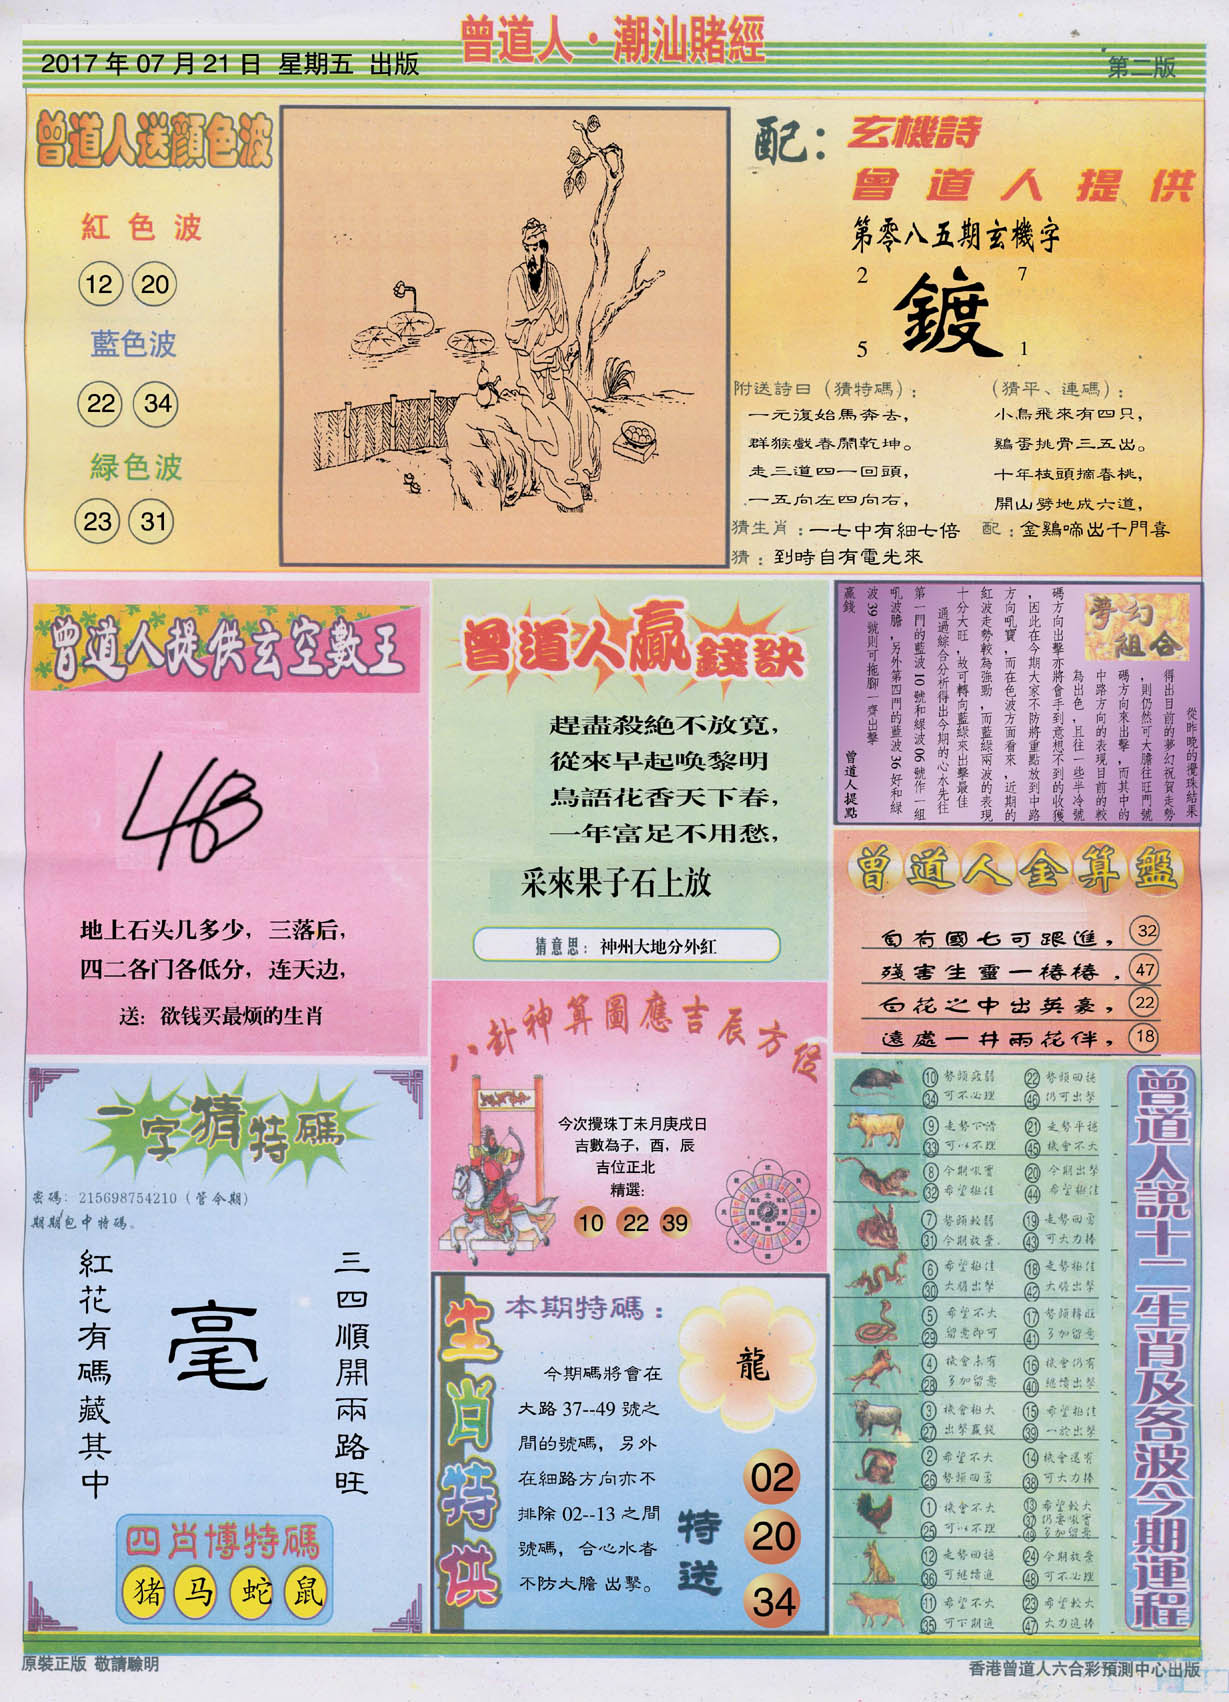 曾道人·潮汕賭經
2017年07月21日 星期五 出版
第二版
曾道人送顏色波
紅色波
12 20
藍色波
22 34
緑色波
23 31
配：玄機詩
曾道人提供
第零八五期玄機字
2 7
鍍
5 1
附送詩曰（猜特碼）：
一元復始馬奔去，
群猴戲春鬧乾坤。
走三道四一回頭，
一五向左四向右，
（猜平、連碼）：
小鳥飛來有四只，
鷄蛋挑骨三五出。
十年枝頭摘春桃，
開山劈地成六道，
猜生肖：一七中有細七倍
配：金鷄啼出千門喜
猜：到時自有電光來
曾道人提供玄空數王
地上石头几多少，三落后，
四二各门各低分，连天边，
送：欲钱买最烦的生肖
曾道人贏錢訣
趕盡殺絶不放寬，
從來早起喚黎明
鳥語花香天下春，
一年富足不用愁，
采來果子石上放
猜意思：神州大地分外紅
夢幻
組合
從昨晚的攪珠結果
得出目前的夢幻祝賀走勢
，則仍然可大膽往旺門號
碼方向來出擊，而其中的
中路方向的表現目前的較
為出色，且往一些半冷號
碼方向出擊亦將會手到意想不到的收獲
，因此在今期大家不防將重點放到中路
方向吼寶，而在色波方面看來，近期的
紅波走勢較為強勁，而藍綠兩波的表現
十分大旺，故可轉向藍綠來出擊最佳
通過綜合分析得出今期的心水先往
第一門的藍波10號和綠波06號作一組
吼波膽，另外第四門的藍波36好和綠
波39號則可拖腳一齊出擊
贏錢
曾道人提點
曾道人金算盤
自有國七可跟進， 32
殘害生靈一樁樁． 47
白花之中出英豪， 22
遠處一井兩花伴， 18
八卦神算圖應吉辰方位
今次攪珠丁未月庚戌日
吉數為子，酉，辰
吉位正北
精選：
10 22 39
一字猜特碼
密碼：215698754210（管今期）
期期包中特碼。
三四順開兩路旺
毫
紅花有碼藏其中
四肖博特碼
猪 马 蛇 鼠
生肖特供
本期特碼：
龍
今期碼將會在
大路37--49號之
間的號碼，另外
在細路方向亦不
排除02--13之間
號碼，合心水者
不防大膽 出擊。
特送
02
20
34
曾道人説十二生肖及各波今期運程
10 勢頭疲弱 22 勢頭回穩
34 可不必理 46 仍可出擊
9 走勢下滑 21 走勢平穩
33 可以不理 45 機會不大
8 今期吼寶 20 今期出擊
32 希望極佳 44 希望極佳
7 勢頭較弱 19 走勢回勇
31 今期放棄 43 可大力捧
6 希望極佳 18 走勢極佳
30 大膽出擊 42 大膽出擊
5 希望不大 17 勢頭轉旺
29 留意即可 41 多加留意
4 機會未有 16 機會仍有
28 多加留意 40 繼續出擊
3 機會極大 15 希望極佳
27 出擊贏錢 39 一於出擊
2 希望不大 14 機會還有
26 勢頭回勇 38 可大力捧
1 機會不大 13 希望較大
37 仍要吼實
25 可以不理 49 多加留意
12 走勢回穩 24 今期放棄
36 可繼續追 48 可不必理
11 希望不大 23 希望較大
35 可下期追 47 大力追捧
原裝正版 敬請驗明
香港曾道人六合彩預測中心出版